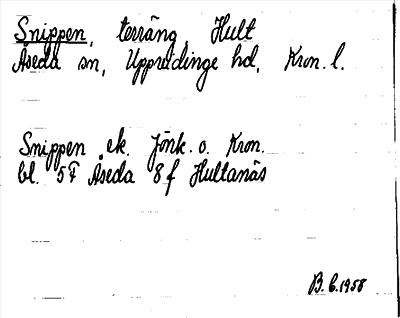 Snippen, terräng, Hult
Åseda sn, Uppvidinge hd, Kron. l.
Snippen ek. Jönk. o. Kron.
bl. 5F Åseda 8f Hultanäs
B. E. 1958